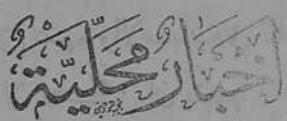 اخبار محليّة